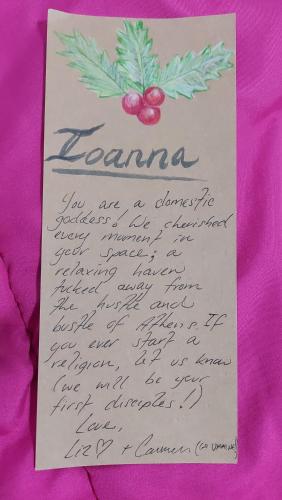 Ioanna
You are a domestic
goddess! We cherished
every moment in
your space; a
relaxing haven
tucked away from
the hustle and
bustle of Athens. If
you ever start a
religion, let us know
(we will be your
first disciples!)
Love,
Liz ♡ + Carmen